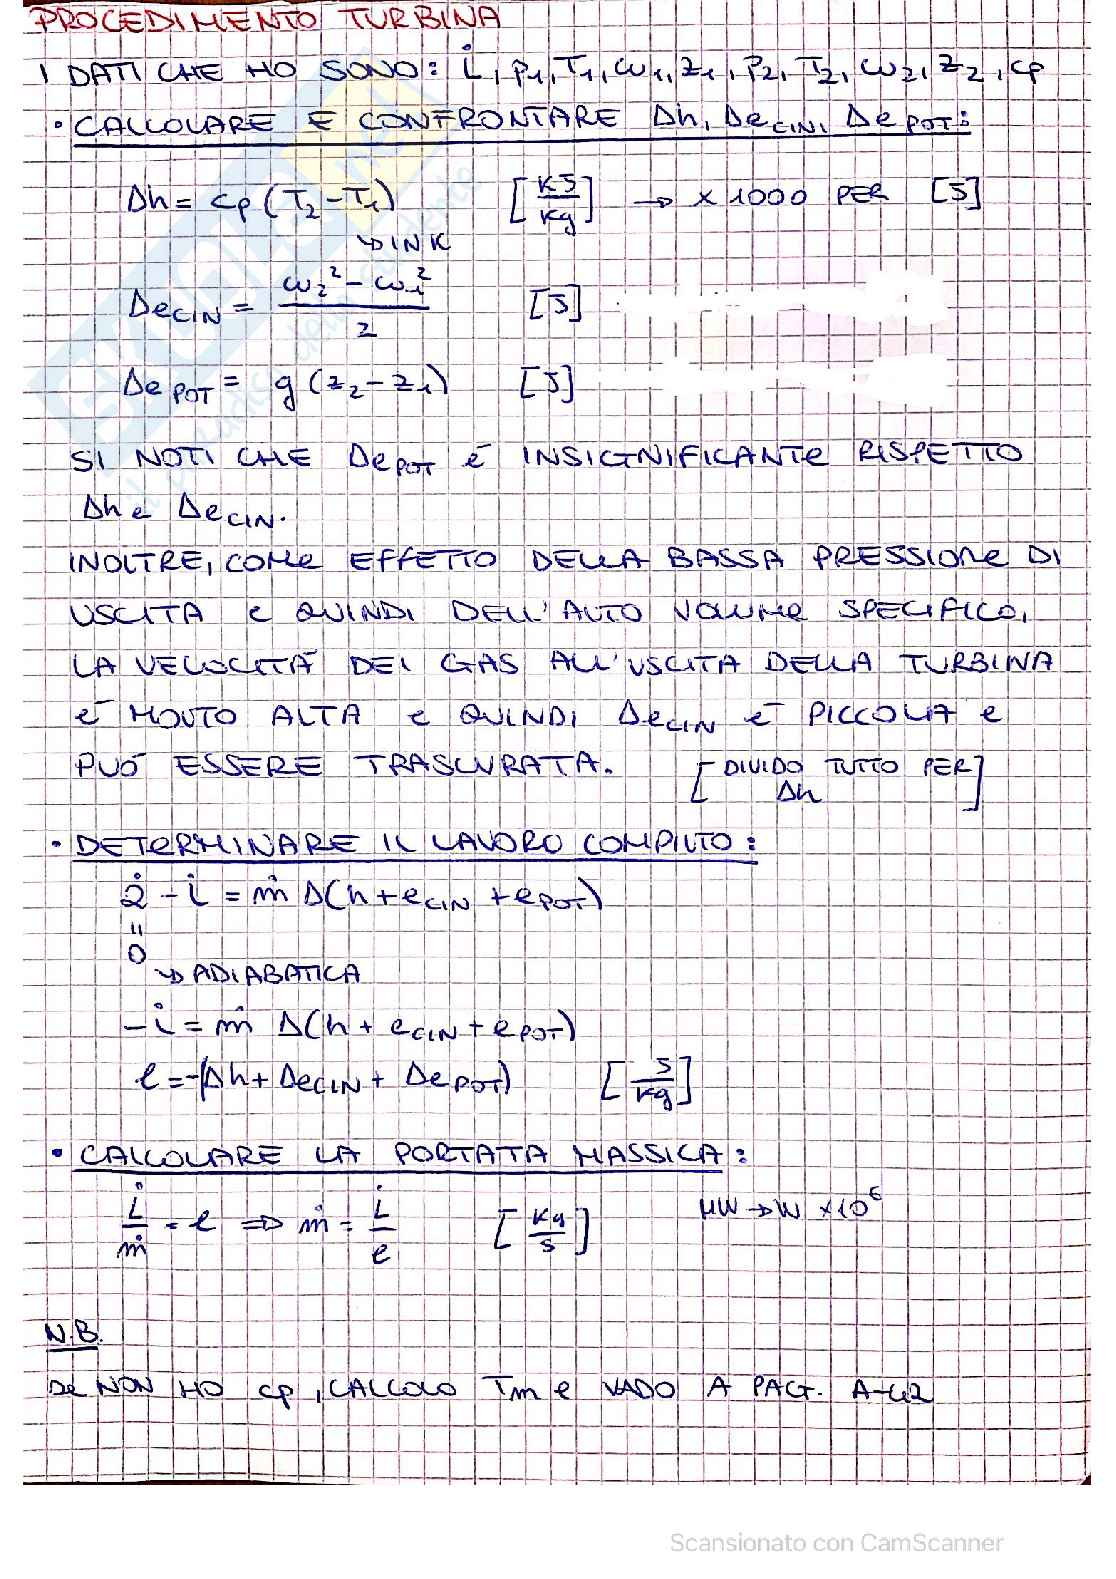 PROCEDIMENTO TURBINA
I DATI CHE HO SONO: L̇, p₁, T₁, ω₁, z₁, p₂, T₂, ω₂, z₂, cp
• CALCOLARE E CONFRONTARE Δh, ΔeCIN, ΔePOT:
Δh = cp (T₂-T₁) [KJ/Kg] → x 1000 PER [J]
↳ IN K
ΔeCIN = (ω₂² - ω₁²)/2 [J]
ΔePOT = g (z₂-z₁) [J]
SI NOTI CHE ΔePOT È INSIGNIFICANTE RISPETTO
Δh e ΔeCIN.
INOLTRE, COME EFFETTO DELLA BASSA PRESSIONE DI
USCITA E QUINDI DELL'ALTO VOLUME SPECIFICO,
LA VELOCITÀ DEI GAS ALL'USCITA DELLA TURBINA
È MOLTO ALTA E QUINDI ΔeCIN È PICCOLA E
PUÒ ESSERE TRASCURATA. [DIVIDO TUTTO PER
Δh]
• DETERMINARE IL LAVORO COMPIUTO:
Q̇ - L̇ = ṁ Δ(h + eCIN + ePOT)
"
0
↳ ADIABATICA
-L̇ = ṁ Δ(h + eCIN + ePOT)
l = -(Δh + ΔeCIN + ΔePOT) [J/Kg]
• CALCOLARE LA PORTATA MASSICA:
L̇/ṁ = l ⇒ ṁ = L̇/l [Kg/s] MW → W x10⁶
N.B.
SE NON HO cp, CALCOLO Tm E VADO A PAG. A-42
Scansionato con CamScanner